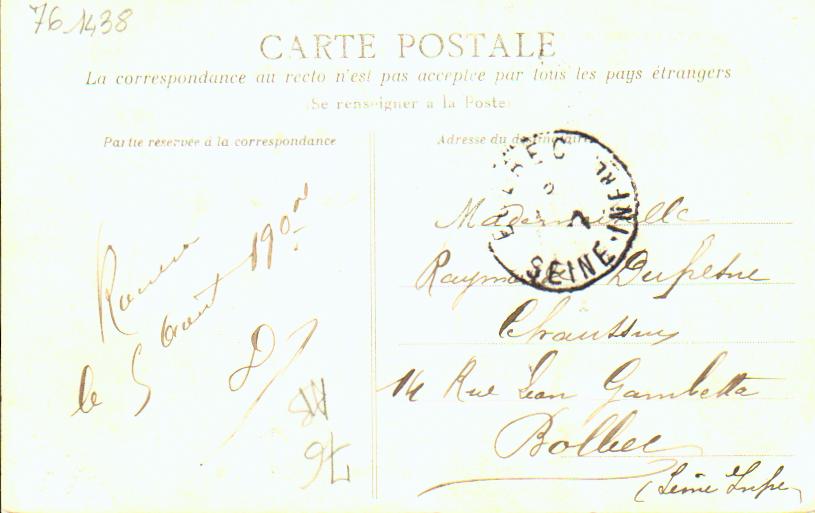 76 1438
CARTE POSTALE
La correspondance au recto n'est pas acceptée par tous les pays étrangers
(Se renseigner à la Poste)
Partie réservée à la correspondance
Adresse du destinataire
BOLBEC
SEINE-INFRE
7
Rouen
le 5 Aout 190
Mademoiselle
Raymonde Dufresne
14 Rue Léon Gambetta
Bolbec
(Seine Infre
76